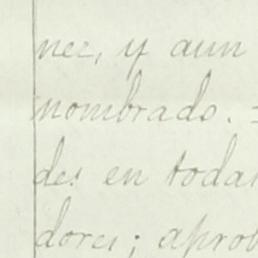 nez, y aun
nombrado. =
des en todas
dores; aprob